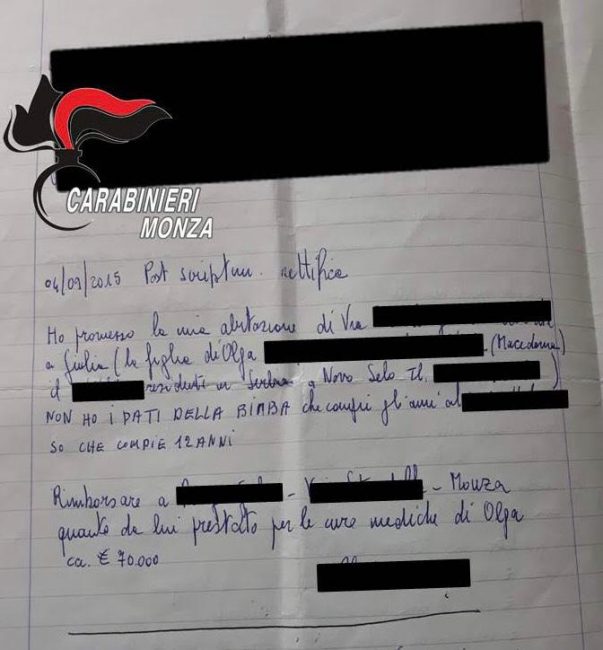 CARABINIERI
MONZA
04/09/2015 Post scriptum. rettifica
Ho promesso la mia abitazione di Via
a Giulia (la figlia di Olga (Macedonia)
il residenti in Serbia a Novo Selo Il )
NON HO I DATI DELLA BIMBA che compie gli anni al
SO CHE COMPIE 12 ANNI
Rimborsare a - - Monza
quanto da lui prestato per le cure mediche di Olga
ca. € 70.000